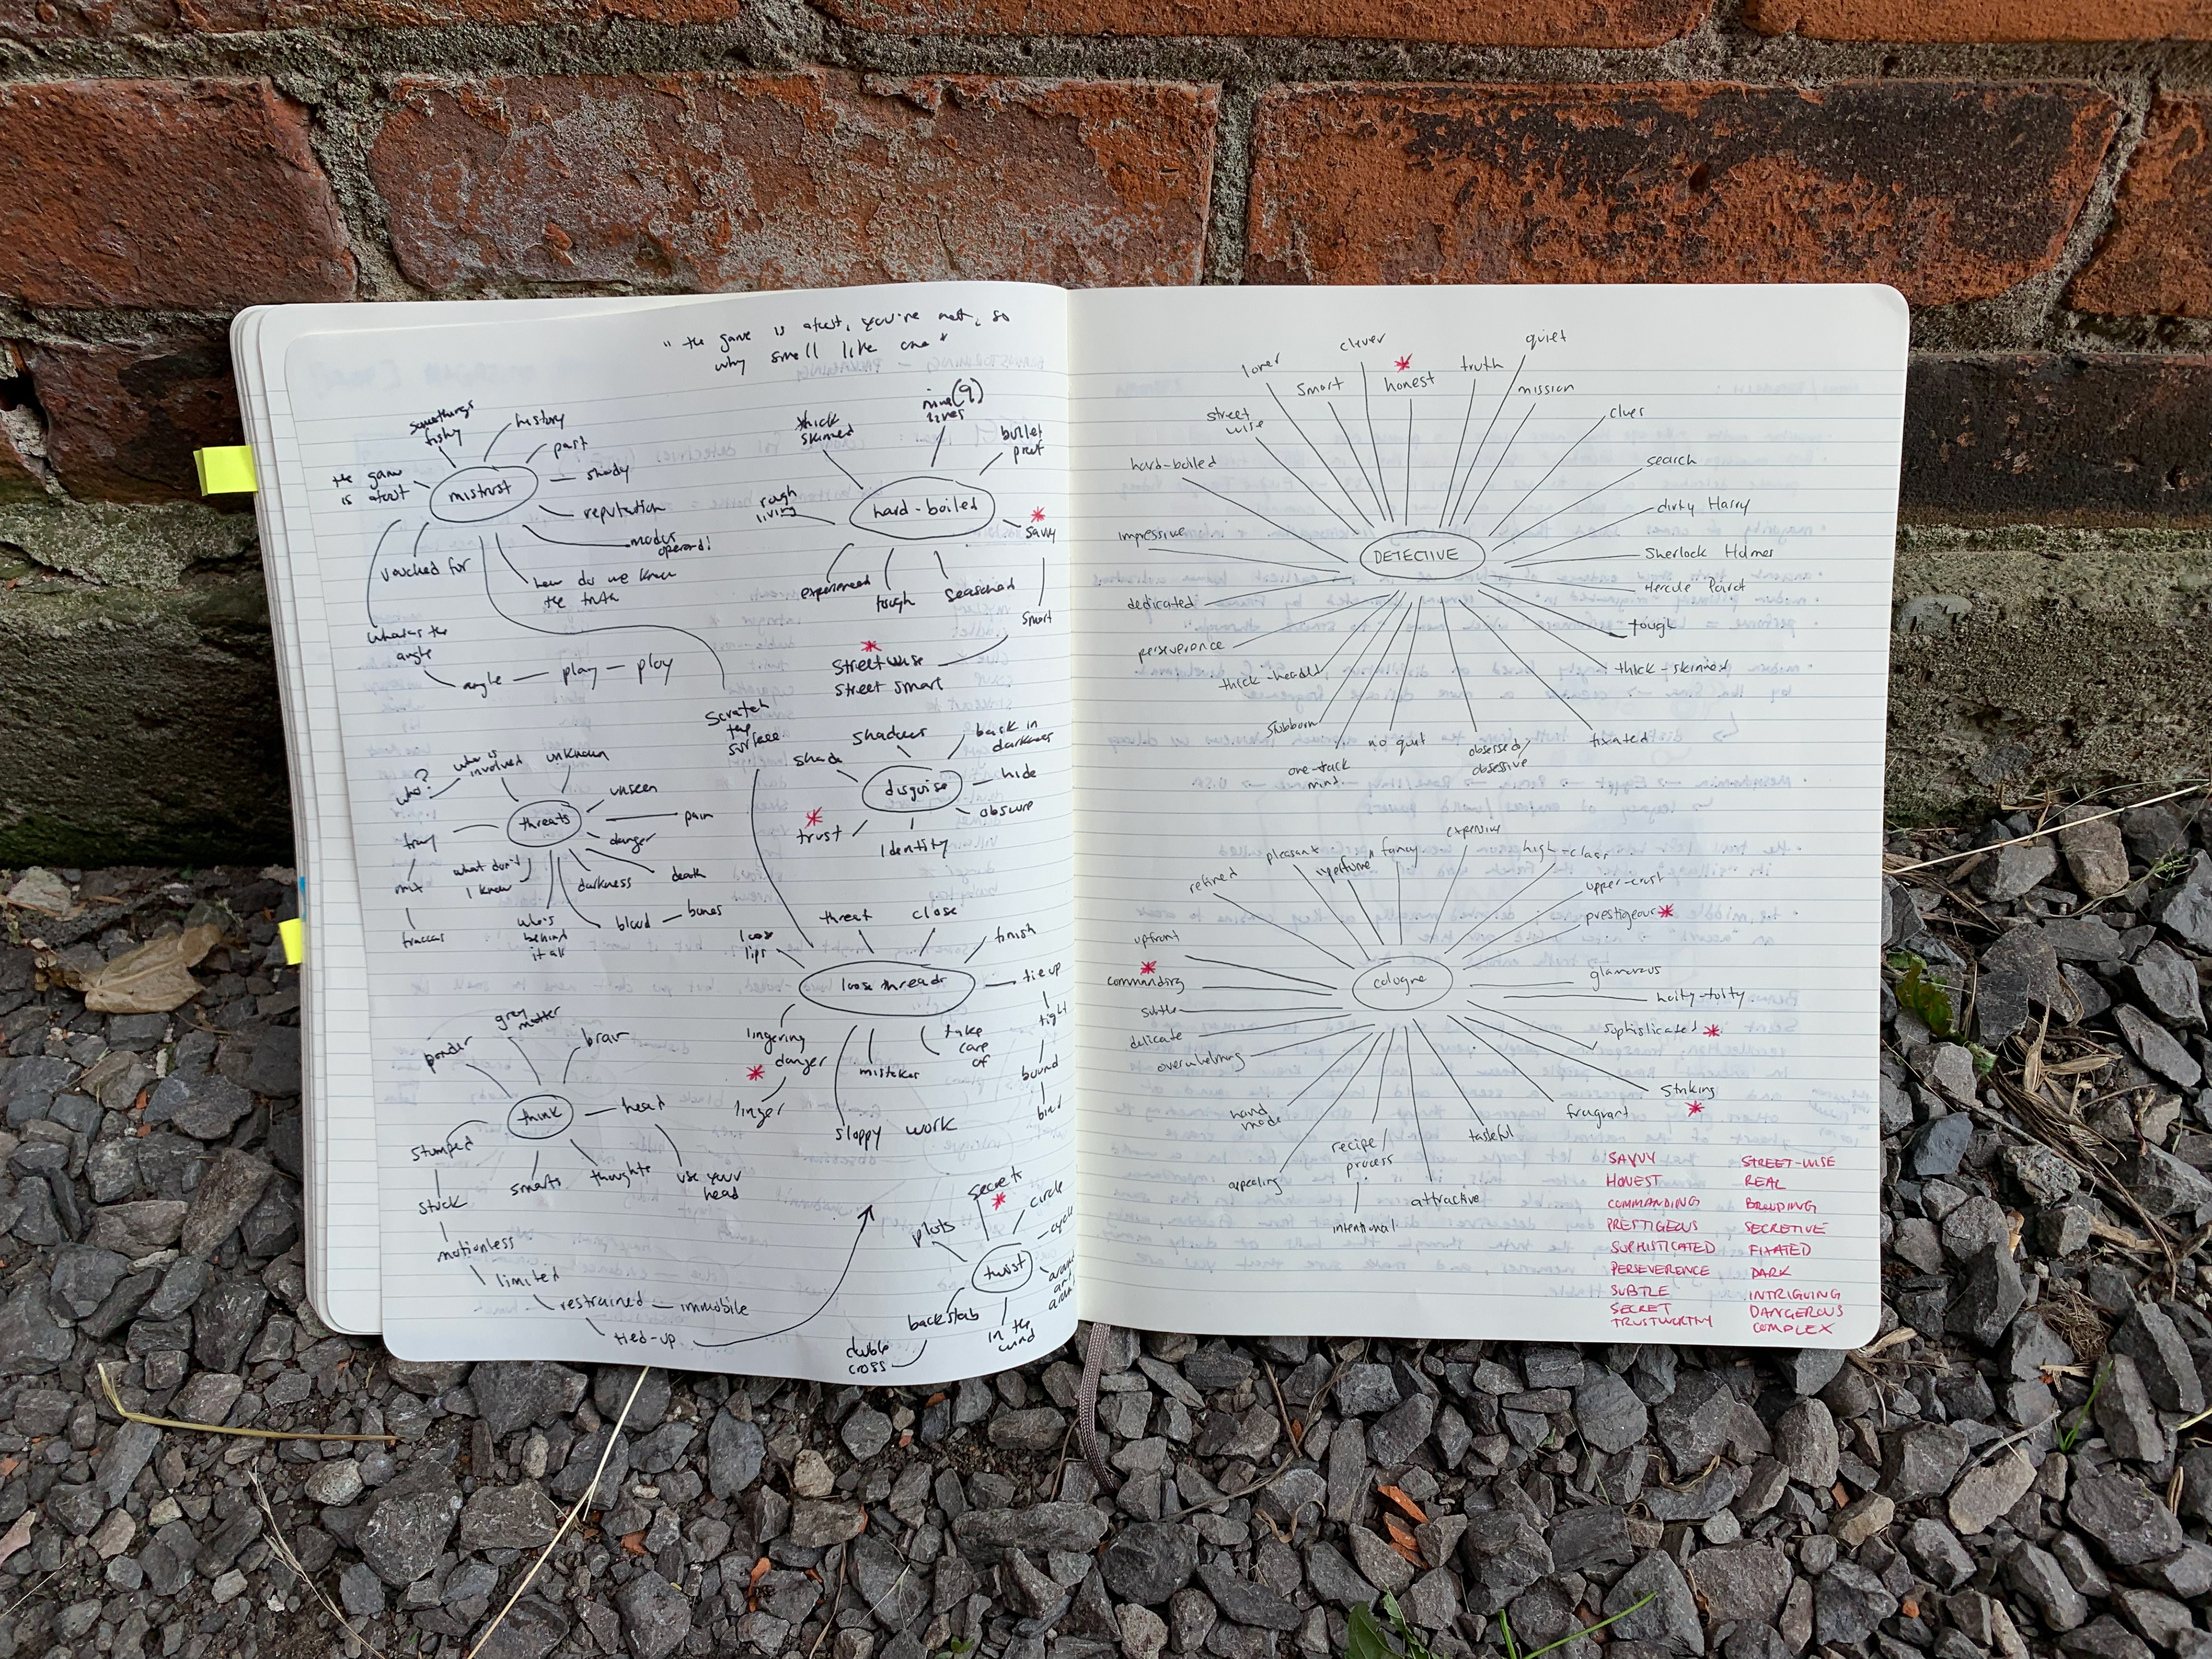 "the game is afoot, you're not, so
why smell like one"
somethings
fishy
history
past
the game
is afoot
mistrust
shady
reputation
modus
operandi
vouched for
how do we know
the truth
what's the
angle
angle — play — ploy
thick
skinned
nine (9)
lives
bullet
proof
rough
living
hard-boiled
savvy
experienced
tough
seasoned
smart
streetwise
street smart
scratch
the
surface
who is
involved
unknown
who?
unseen
threats
pain
danger
what don't
I know
darkness
death
who's
behind
it all
blood — bones
shade
shadows
bask in
darkness
disguise
hide
obscure
trust
Identity
threat
close
loose
lips
finish
loose threads
tie up
tight
bound
bind
lingering
danger
linger
mistakes
take
care
of
sloppy work
ponder
grey
matter
brain
think
head
stumped
smarts
thoughts
use your
head
stuck
motionless
limited
restrained — immobile
tied-up
secrets
circle
plots
cycle
twist
backstab
in the
wind
double
cross
loner
clever
quiet
smart
honest
truth
mission
street
wise
clues
hard-boiled
search
dirty Harry
impressive
DETECTIVE
Sherlock Holmes
Hercule Poirot
dedicated
tough
perseverance
thick-skinned
thick-headed
stubborn
no quit
obsessed/
obsessive
fixated
one-track
mind
pleasant
"perfume"
fancy
expensive
high-class
refined
upper-crust
prestigeous
upfront
commanding
cologne
glamorous
hoity-toity
subtle
sophisticated
delicate
overwhelming
striking
hand
made
fragrant
recipe/
process
tasteful
appealing
attractive
intentional
SAVVY
HONEST
COMMANDING
PRESTIGEOUS
SOPHISTICATED
PERSEVERENCE
SUBTLE
SECRET
TRUSTWORTHY
STREET-WISE
REAL
BROODING
SECRETIVE
FIXATED
DARK
INTRIGUING
DANGEROUS
COMPLEX